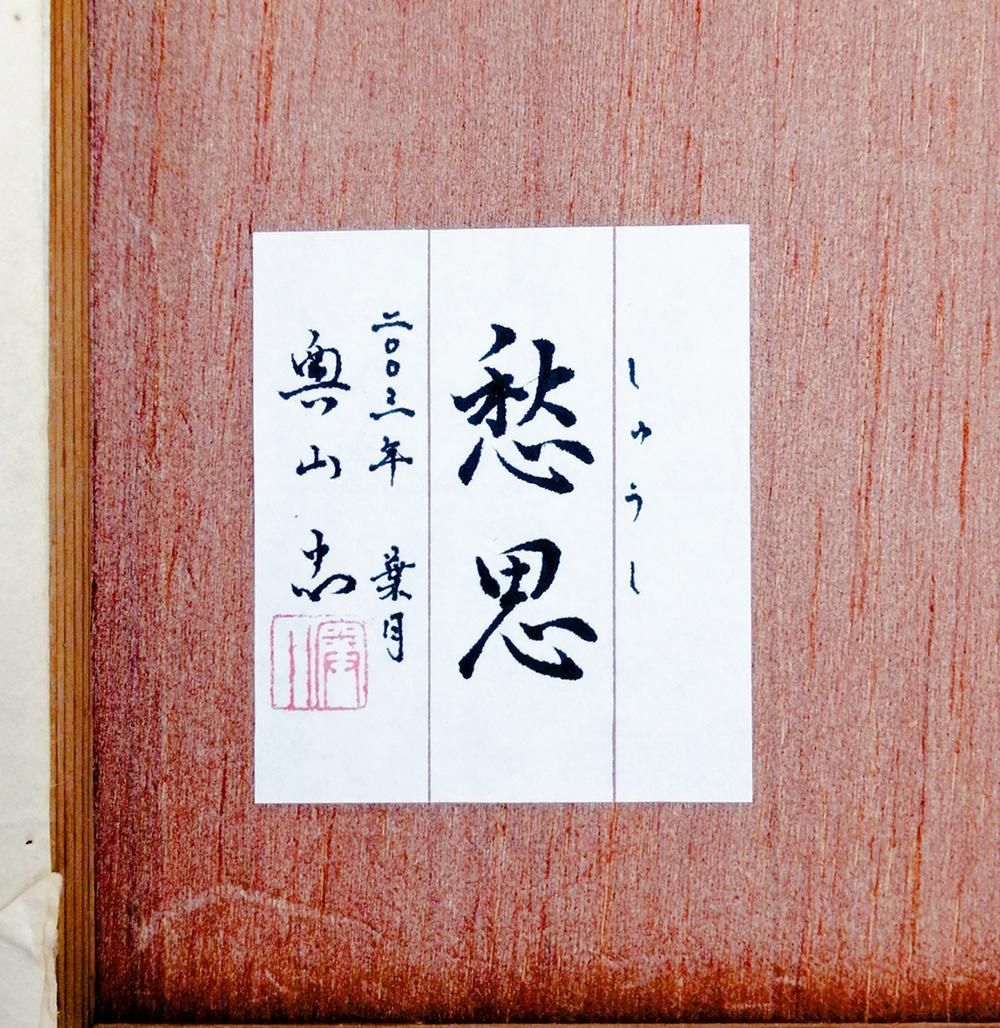 しゅうし
愁思
二〇〇三年 葉月
奥山 忠